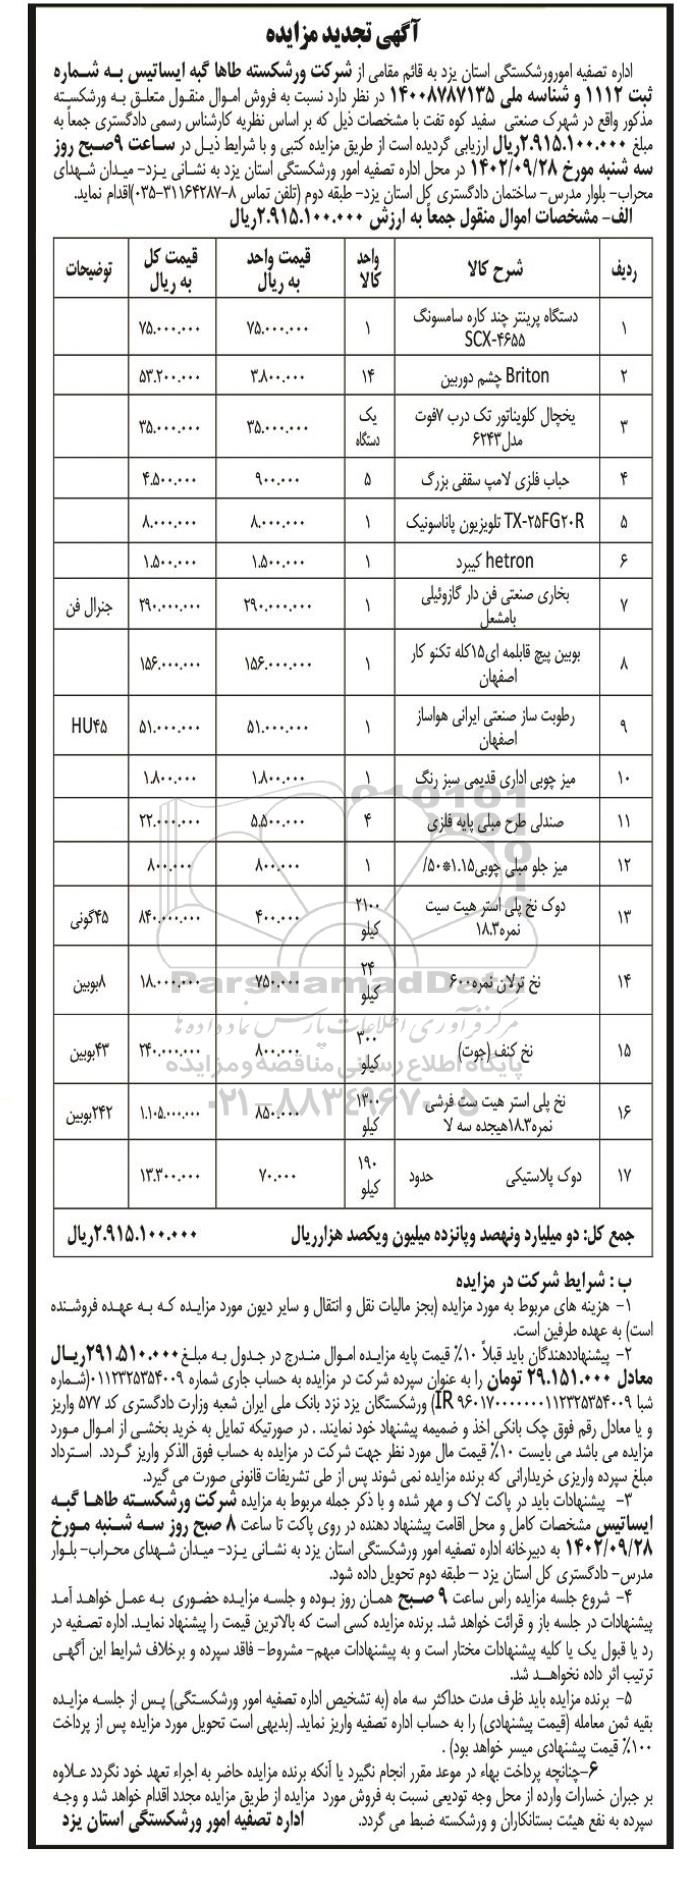 آگهی تجدید مزایده
اداره تصفیه امورورشکستگی استان یزد به قائم مقامی از شرکت ورشکسته طاها گبه ایساتیس به شماره
ثبت ۱۱۱۲ و شناسه ملی ۱۴۰۰۸۷۸۷۱۳۵ در نظر دارد نسبت به فروش اموال منقول متعلق به ورشکسته
مذکور واقع در شهرک صنعتی سفید کوه تفت با مشخصات ذیل که بر اساس نظریه کارشناس رسمی دادگستری جمعاً به
مبلغ ۲.۹۱۵.۱۰۰.۰۰۰ریال ارزیابی گردیده است از طریق مزایده کتبی و با شرایط ذیل در ساعت ۹صبح روز
سه شنبه مورخ ۱۴۰۲/۰۹/۲۸ در محل اداره تصفیه امور ورشکستگی استان یزد به نشانی یزد- میدان شهدای
محراب- بلوار مدرس- ساختمان دادگستری کل استان یزد- طبقه دوم (تلفن تماس ۸-۳۱۱۶۴۲۸۷-۰۳۵)اقدام نماید.
الف- مشخصات اموال منقول جمعاً به ارزش ۲.۹۱۵.۱۰۰.۰۰۰ریال
ردیف شرح کالا واحد کالا قیمت واحد به ریال قیمت کل به ریال توضیحات
۱ دستگاه پرینتر چند کاره سامسونگ SCX-۴۶۵۵ ۱ ۷۵.۰۰۰.۰۰۰ ۷۵.۰۰۰.۰۰۰
۲ Briton چشم دوربین ۱۴ ۳.۸۰۰.۰۰۰ ۵۳.۲۰۰.۰۰۰
۳ یخچال کلویناتور تک درب ۷فوت مدل۶۲۴۳ یک دستگاه ۳۵.۰۰۰.۰۰۰ ۳۵.۰۰۰.۰۰۰
۴ حباب فلزی لامپ سقفی بزرگ ۵ ۹۰۰.۰۰۰ ۴.۵۰۰.۰۰۰
۵ TX-۲۵FG۲۰R تلویزیون پاناسونیک ۱ ۸.۰۰۰.۰۰۰ ۸.۰۰۰.۰۰۰
۶ hetron کیبرد ۱ ۱.۵۰۰.۰۰۰ ۱.۵۰۰.۰۰۰
۷ بخاری صنعتی فن دار گازوئیلی بامشعل ۱ ۲۹۰.۰۰۰.۰۰۰ ۲۹۰.۰۰۰.۰۰۰ جنرال فن
۸ بوبین پیچ قابلمه ای۱۵کله تکنو کار اصفهان ۱ ۱۵۶.۰۰۰.۰۰۰ ۱۵۶.۰۰۰.۰۰۰
۹ رطوبت ساز صنعتی ایرانی هواساز اصفهان ۱ ۵۱.۰۰۰.۰۰۰ ۵۱.۰۰۰.۰۰۰ HU۴۵
۱۰ میز چوبی اداری قدیمی سبز رنگ ۱ ۱.۸۰۰.۰۰۰ ۱.۸۰۰.۰۰۰
۱۱ صندلی طرح مبلی پایه فلزی ۴ ۵.۵۰۰.۰۰۰ ۲۲.۰۰۰.۰۰۰
۱۲ میز جلو مبلی چوبی۱.۱۵*۵۰/ ۱ ۸۰۰.۰۰۰ ۸۰۰.۰۰۰
۱۳ دوک نخ پلی استر هیت سیت نمره۱۸.۳ ۲۱۰۰ کیلو ۴۰۰.۰۰۰ ۸۴۰.۰۰۰.۰۰۰ ۴۵گونی
۱۴ نخ ترلان نمره۶۰۰ ۲۴ کیلو ۷۵۰.۰۰۰ ۱۸.۰۰۰.۰۰۰ ۸بوبین
۱۵ نخ کنف (جوت) ۳۰۰ کیلو ۸۰۰.۰۰۰ ۲۴۰.۰۰۰.۰۰۰ ۴۳بوبین
۱۶ نخ پلی استر هیت ست فرشی نمره۱۸.۳هیجده سه لا ۱۳۰۰ کیلو ۸۵۰.۰۰۰ ۱.۱۰۵.۰۰۰.۰۰۰ ۲۴۲بوبین
۱۷ دوک پلاستیکی حدود ۱۹۰ کیلو ۷۰.۰۰۰ ۱۳.۳۰۰.۰۰۰
جمع کل: دو میلیارد ونهصد وپانزده میلیون ویکصد هزارریال ۲.۹۱۵.۱۰۰.۰۰۰ریال
ParsNamadData
مرکز فرآوری اطلاعات پارس نماد داده ها
پایگاه اطلاع رسانی مناقصه و مزایده
۰۲۱-۸۸۳۴۹۶۷۰-۵
ب : شرایط شرکت در مزایده
۱- هزینه های مربوط به مورد مزایده (بجز مالیات نقل و انتقال و سایر دیون مورد مزایده که به عهده فروشنده
است) به عهده طرفین است.
۲- پیشنهاددهندگان باید قبلاً ۱۰٪ قیمت پایه مزایده اموال مندرج در جدول به مبلغ۲۹۱.۵۱۰.۰۰۰ریال
معادل ۲۹.۱۵۱.۰۰۰ تومان را به عنوان سپرده شرکت در مزایده به حساب جاری شماره ۰۱۱۲۳۲۵۳۵۴۰۰۹(شماره
شبا IR ۹۶۰۱۷۰۰۰۰۰۰۰۱۱۲۳۲۵۳۵۴۰۰۹) ورشکستگان یزد نزد بانک ملی ایران شعبه وزارت دادگستری کد ۵۷۷ واریز
و یا معادل رقم فوق چک بانکی اخذ و ضمیمه پیشنهاد خود نمایند. . در صورتیکه تمایل به خرید بخشی از اموال مورد
مزایده می باشد می بایست ۱۰٪ قیمت مال مورد نظر جهت شرکت در مزایده به حساب فوق الذکر واریز گردد. استرداد
مبلغ سپرده واریزی خریدارانی که برنده مزایده نمی شوند پس از طی تشریفات قانونی صورت می گیرد.
۳- پیشنهادات باید در پاکت لاک و مهر شده و با ذکر جمله مربوط به مزایده شرکت ورشکسته طاها گبه
ایساتیس مشخصات کامل و محل اقامت پیشنهاد دهنده در روی پاکت تا ساعت ۸ صبح روز سه شنبه مورخ
۱۴۰۲/۰۹/۲۸ به دبیرخانه اداره تصفیه امور ورشکستگی استان یزد به نشانی یزد- میدان شهدای محراب- بلوار
مدرس- دادگستری کل استان یزد – طبقه دوم تحویل داده شود.
۴- شروع جلسه مزایده راس ساعت ۹ صبح همان روز بوده و جلسه مزایده حضوری به عمل خواهد آمد
پیشنهادات در جلسه باز و قرائت خواهد شد. برنده مزایده کسی است که بالاترین قیمت را پیشنهاد نماید. اداره تصفیه در
رد یا قبول یک یا کلیه پیشنهادات مختار است و به پیشنهادات مبهم- مشروط- فاقد سپرده و برخلاف شرایط این آگهی
ترتیب اثر داده نخواهد شد.
۵- برنده مزایده باید ظرف مدت حداکثر سه ماه (به تشخیص اداره تصفیه امور ورشکستگی) پس از جلسه مزایده
بقیه ثمن معامله (قیمت پیشنهادی) را به حساب اداره تصفیه واریز نماید. (بدیهی است تحویل مورد مزایده پس از پرداخت
۱۰۰٪ قیمت پیشنهادی میسر خواهد بود) .
۶-چنانچه پرداخت بهاء در موعد مقرر انجام نگیرد یا آنکه برنده مزایده حاضر به اجراء تعهد خود نگردد علاوه
بر جبران خسارات وارده از محل وجه تودیعی نسبت به فروش مورد مزایده از طریق مزایده مجدد اقدام خواهد شد و وجه
سپرده به نفع هیئت بستانکاران و ورشکسته ضبط می گردد. اداره تصفیه امور ورشکستگی استان یزد